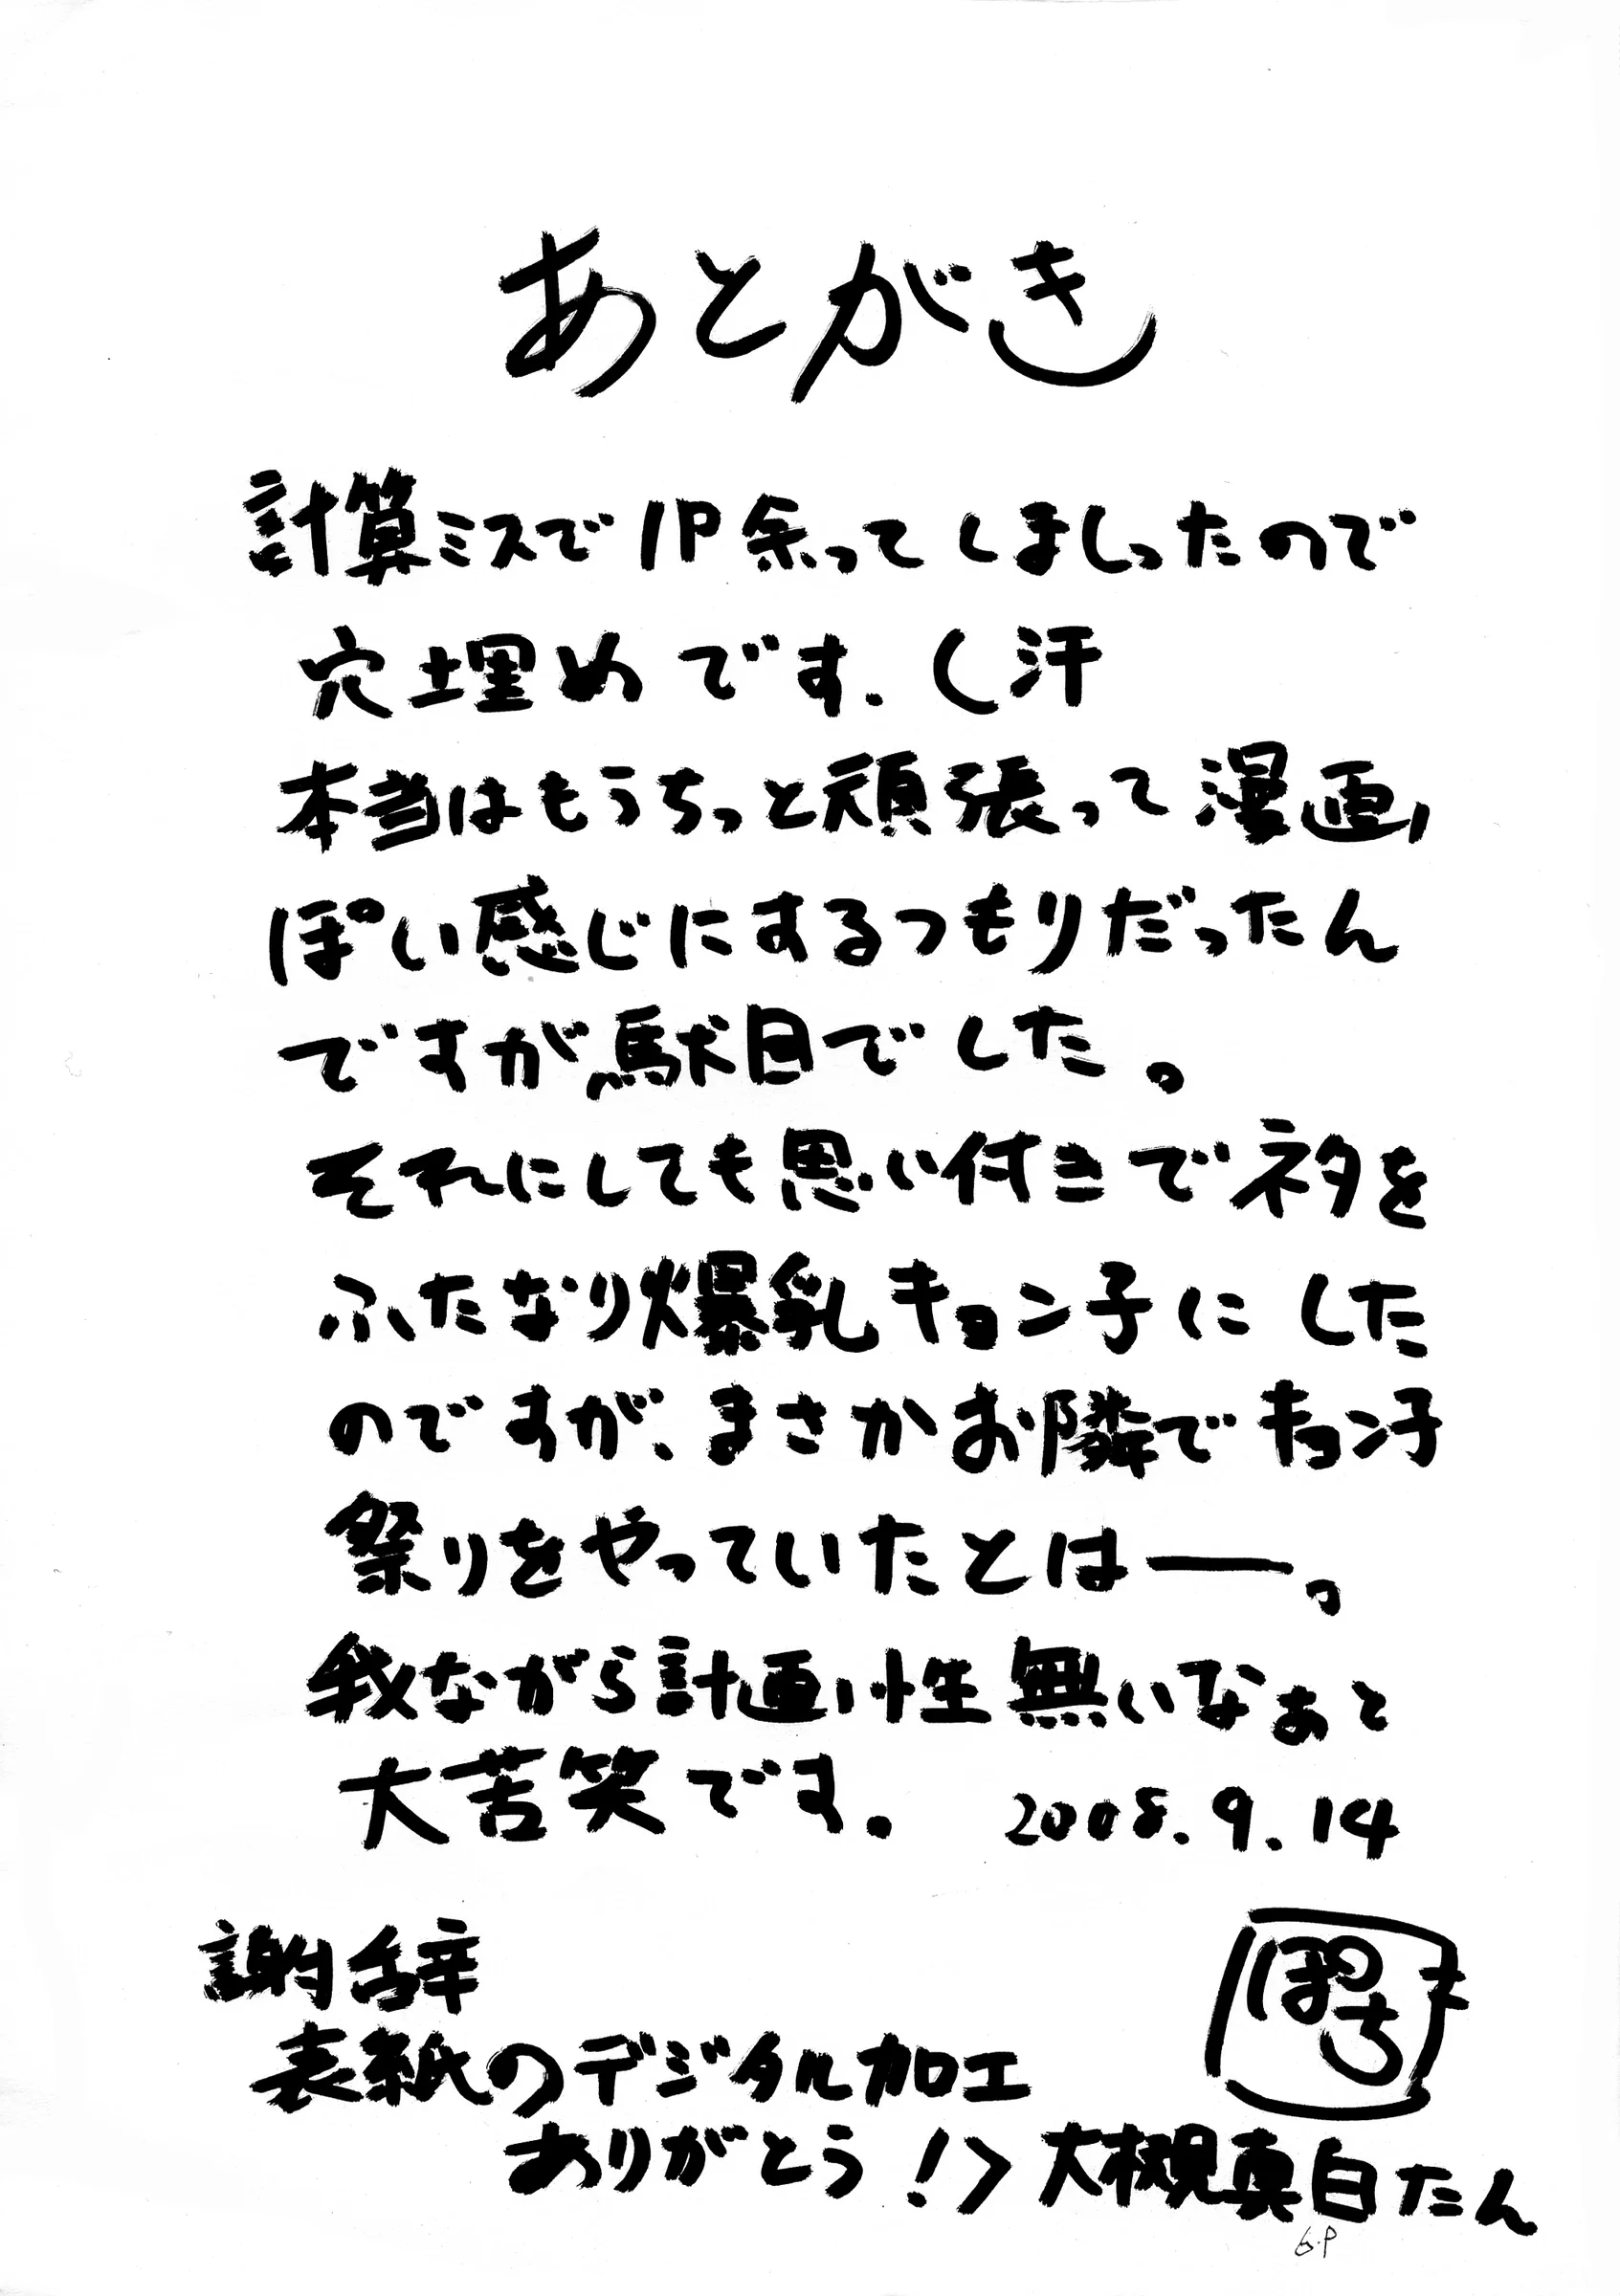 あとがき
計算ミスで1P余ってしましったので
穴埋めです.(汗
本当はもうちっと頑張って漫画
ぽい感じにするつもりだったん
ですが駄目でした。
それにしても思い付きでネタを
ふたなり爆乳キョン子にした
のですが、まさかお隣でキョン子
祭りをやっていたとは―。
我ながら計画性無いなぁと
大苦笑です。 2008.9.14
謝辞
ぽち
表紙のデジタル加工
ありがとう!>大槻真白たん
6.P